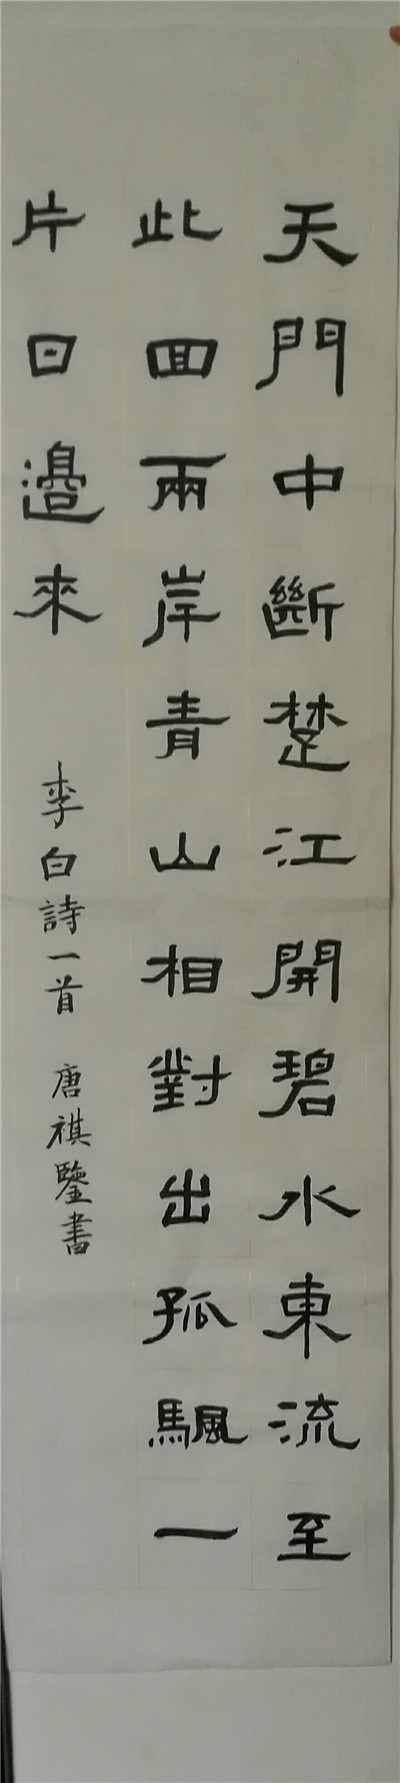 天門中斷楚江開碧水東流至
此回兩岸青山相對出孤颿一
片日邉來
李白詩一首 唐祺鑒書